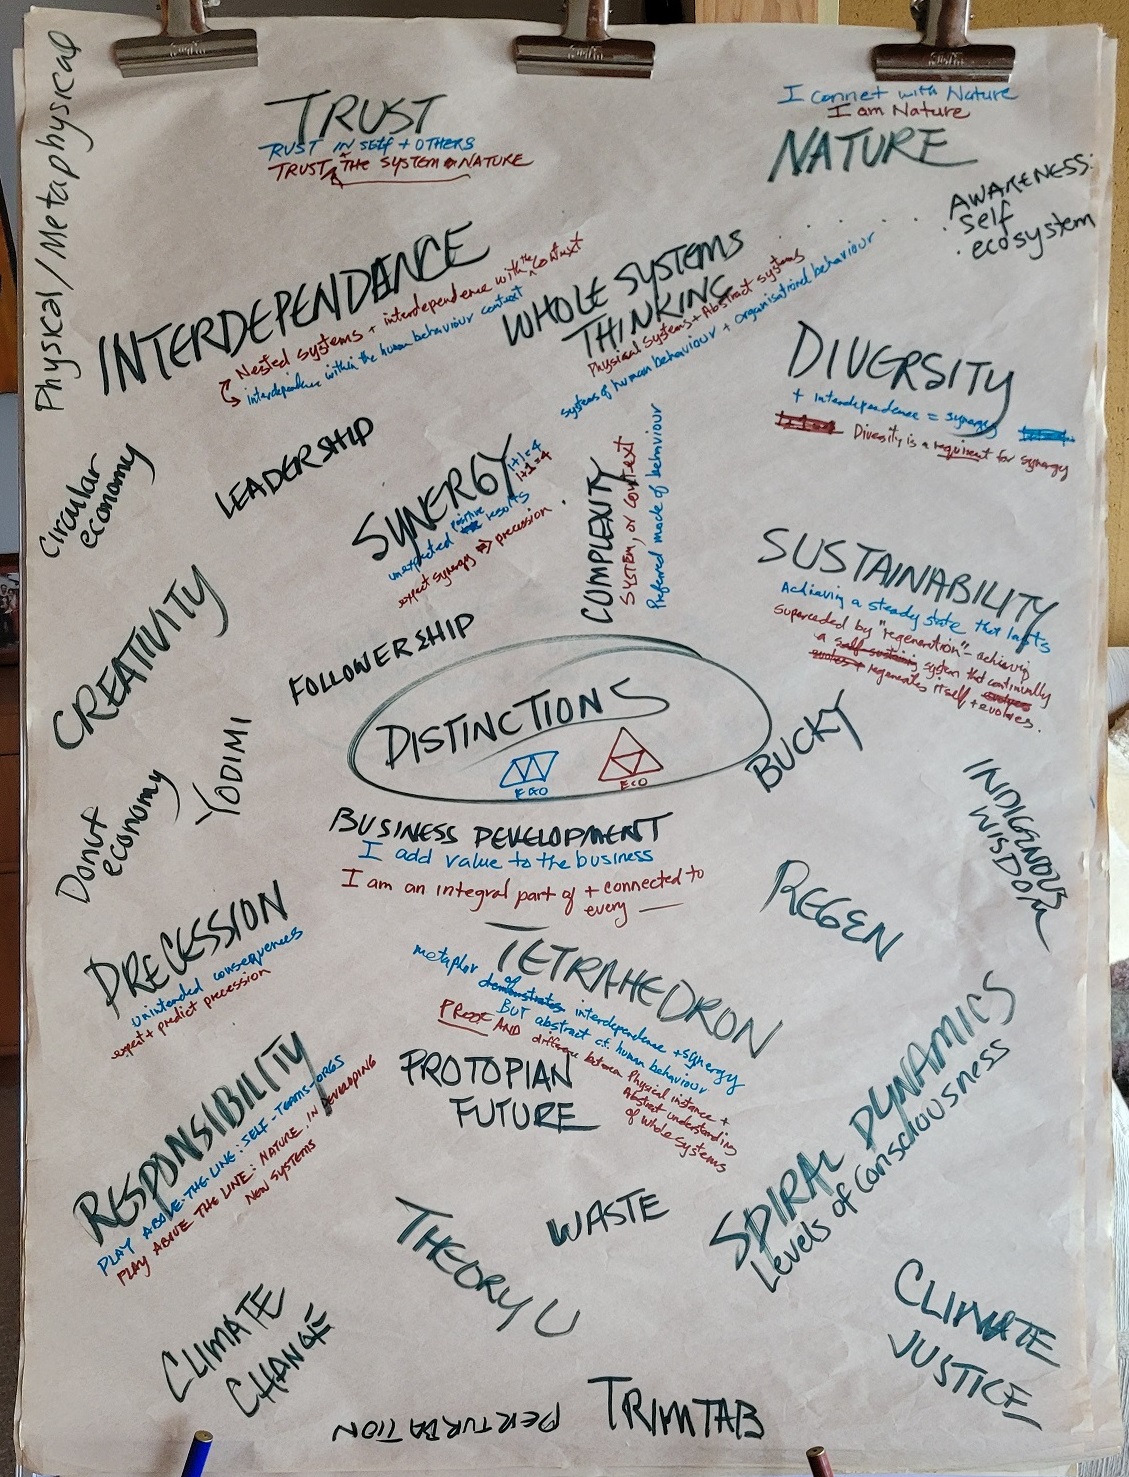 Physical/Metaphysical
TRUST
RUST IN SELF + OTHERS
TRUST THE SYSTEM NATURE
I connet with Nature
I am Nature
NATURE
AWARENESS:
. self
. ecosystem
INTERDEPENDENCE
Nested systems + interdependence with the context
interdependence within the human behaviour context
WHOLE SYSTEMS
THINKING
Physical Systems + Abstract systems
systems of human behaviour + organisational behaviour
DIVERSITY
+ interdependence = synergy
Diversity is a requiment for synergy
Circular
economy
LEADERSHIP
SYNERGY
1+1=4
1+1=4
unexpected positive results
expect synergy => precession
COMPLEXITY
SYSTEM, or CONTEXT
Preferred mode of behaviour
SUSTAINABILITY
Achieving a steady state that lasts
Superceded by "regeneration" - achieving
a self-sustaining system that continually
regenerates itself + evolves.
CREATIVITY
FOLLOWERSHIP
DISTINCTIONS
EGO
ECO
BUCKY
YODIMI
Donut
economy
INDIGENOUS
WISDOM
BUSINESS DEVELOPMENT
I add value to the business
I am an integral part of + connected to
every —
REGEN
PRECESSION
unintended consequences
expect + predict precession
TETRAHEDRON
metaphor of demonstrates interdependence + synergy
BUT abstract cf. human behaviour
PROOF AND difference between Physical instance +
Abstract understanding
of whole systems
PROTOPIAN
FUTURE
RESPONSIBILITY
PLAY ABOVE-THE-LINE: SELF-TEAMS-ORGS
PLAY ABOVE THE LINE: NATURE, IN DEVELOPING
NEW SYSTEMS
SPIRAL DYNAMICS
Levels of Consciousness
WASTE
THEORY U
CLIMATE
CHANGE
CLIMATE
JUSTICE
PERTURBATION
TRIMTAB